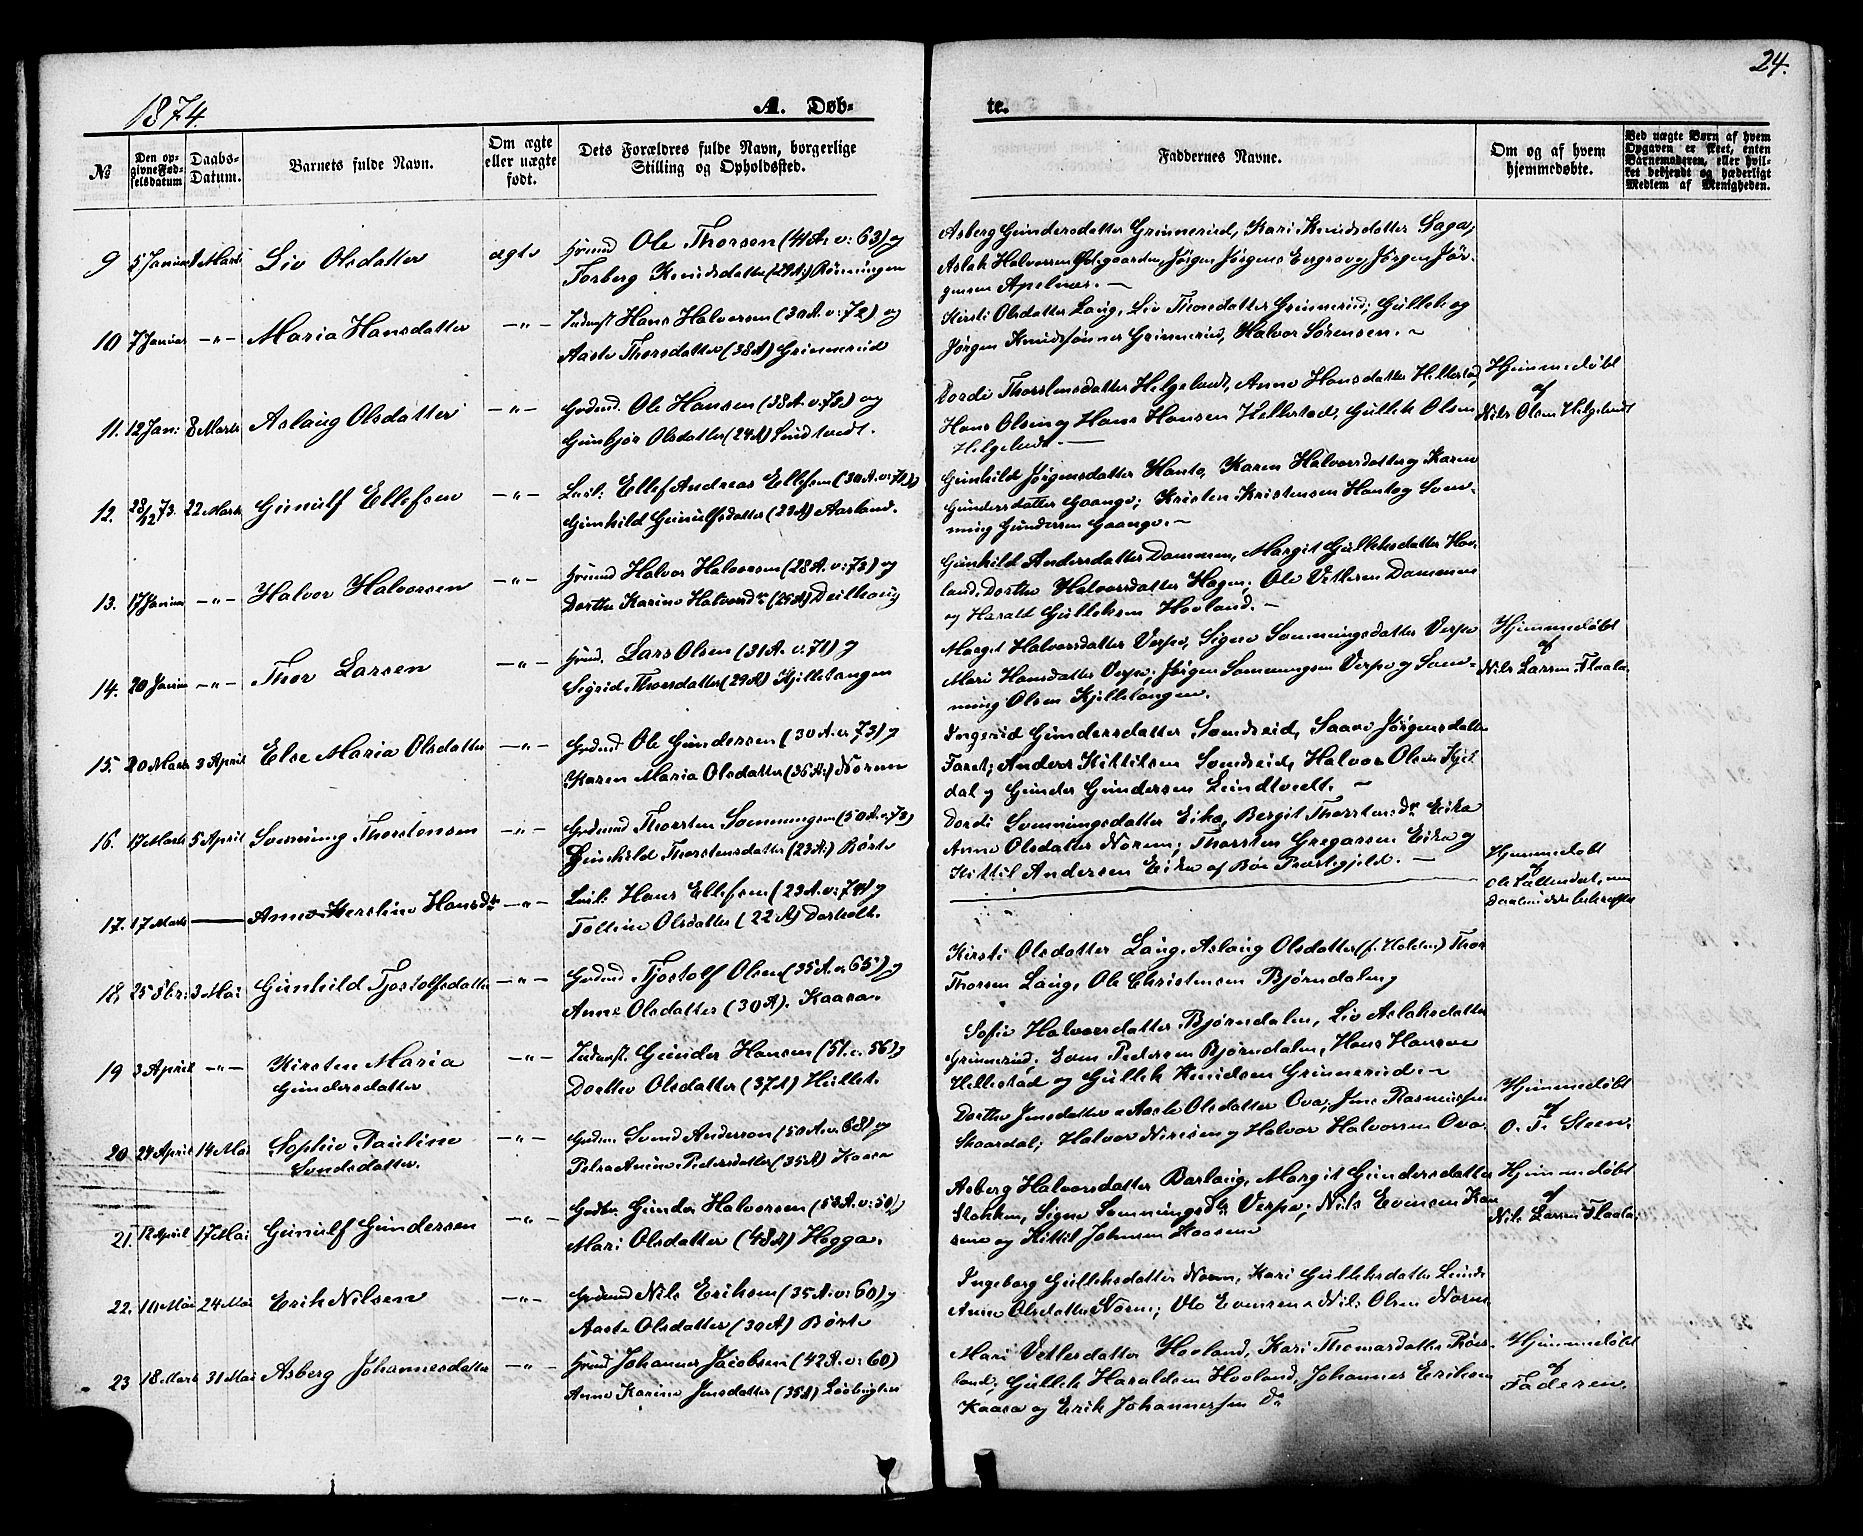 24.
1874.
A. Døb-
te.
№
Den op-
givne Fød-
selsdatum
Daabs-
Datum.
Barnets fulde Navn.
Om ægte
eller uægte
født.
Dets Forældres fulde Navn, borgerlige
Stilling og Opholdssted.
Faddernes Navne.
Om og af hvem
hjemmedøbte.
Ved uægte Børn af hvem
Opgaven er skeet, enten
Barnemoderen, eller hvil-
ket bekjendt og hæderligt
Medlem af Menigheden.
9 5 Januar 1 Marts Liv Olsdatter ægte Ole Thorsen (41 A. v: 63) og
Torberg Knudsdatter (29 A) Rønningen
Asberg Gundersdatter Grinnerud, Kari Knudsdatter Saga,
Aslak Halvorsen Ødegaarden, Jørgen Jørgens og Jørgen Jør-
gensen Apelnæs. —
10 7 Januar — " — Maria Hansdatter — " — Inderst Hans Halvorsen (30 A. v: 72) og
Aaste Thorsdatter (38 A) Grinnerud
Kirsti Olsdatter Laug, Liv Thorsdatter Grinnerud, Gullek og
Jørgen Knudsønner Grinnerud, Halvor Sørensen. —
11. 12 Jan: 8 Marts Aslaug Olsdatter — " — Gdmd. Ole Hansen (38 A. v. 73) og
Gunbjør Olsdatter (24 A) Lundtvedt.
Dordi Thorstensdatter Helgelandt, Anne Hansdatter Hellestad,
Hans Olsen og Hans Hansen Hellestad, Gullek Olsen
Helgelandt. —
Hjemmedøbt
af
Nils Olsen Helgelandt
12. 28/12 73. 22 Marts Gunulf Ellefsen — " — Ellef Andreas Ellefsen (30 A. v: 72) og
Gunhild Gunulfsdatter (23 A) Aasland.
Gunhild Jørgensdatter Hanto, Karen Halvorsdatter og Karen
Gundersdatter Gaange; Kristen Kristensen Hanto og Søn-
ning Gundersen Gaange. —
13. 17 Januar — " — Halvor Halvorsen — " — Halvor Halvorsen (28 A. v: 73) og
Dorthe Karine Halvorsdr (25 A)
Gunhild Andersdatter Dammen, Margit Gulleksdatter Hov-
land, Dorthe Halvorsdatter Hagen; Ole Vetlesen Dammen
og Harald Gulleksen Hovland. —
14. 20 Januar — " — Thor Larsen — " — Lars Olsen (31 A. v. 71) og
Sigrid Thorsdatter (29 A) Kjilletangen
Marget Halvorsdatter Verpe, Signe Sønningsdatter Verpe
Mari Hansdatter Verpe, Jørgen Sønningsen Verpe og Søn-
ning Olsen Kjilletangen.
Hjemmedøbt
af
Nils Larsen Flaata
15. 20 Marts 3 April Else Maria Olsdatter — " — Gdmd Ole Gundersen (30 A. v. 73) og
Karen Maria Olsdatter (36 A.) Norem
Ingerid Gundersdatter Sondreid, Jørgensdatter
Anders Kittilsen Sondreid, Halvor Olsen
dal og Gunder Gundersen Lundtvedt. —
16. 17 Marts 5 April Sønning Thorstensen — " — Gdmd Thorsten Sønningsen (50 A. v. 73)
Gunhild Thorstensdatter (23 A.) Børte
Dordi Sønningsdatter Eika, Bergit Thorstensdr Eika
Anne Olsdatter Norem; Thorsten Gregarsen Eika og
Kittil Andersen Eika af Bøe Præstegjeld. —
17. 17 Marts — Anne Kerstine Hansdr — " — Hans Ellefsen (23 A. v: 74) og
Tolline Olsdatter (22 A) Dorholt.
Hjemmedøbt
af
18. 25 3 Mai Gunhild Tjostolfsdatter — " — Gdmd. Tjostolf Olsen (35 A. v. 65) og
Anne Olsdatter (30 A). Kaasa.
Kirsti Olsdatter Laug, Aslaug Olsdatter (f. Holden) Thor
Thorsen Laug, Ole Christensen Bjørndalen
19 3 April — " — Kirsten Maria
Gundersdatter
— " — Inderst. Gunder Hansen (51. v. 56) og
Dorthe Olsdatter (37 A) Hullet.
Sofie Halvorsdatter Bjørndalen, Liv Aslaksdatter
Grinnerud, Pedersen Bjørndalen, Hans Hansen
Hellestad og Gullek Knudsen Grinnerud. —
20 24 April 14 Mai Sophie Pauline
Svendsdatter.
— " — Gdmd. Svend Anderson (50 A. v. 68) og
Petra Anine Pedersdatter (35 A) Kaasa
Dorthe Jensdatter Aaste Olsdatter Ova, Jens Rasmussen
Skaardal; Halvor Nirisen og Halvor Halvorsen Ova.
Hjemmedøbt
af
O. T. Steen.
21. 12 April 17 Mai Gunulf Gundersen — " — Gunder Halvorsen (53 A. v: 50)
Mari Olsdatter (48 A) Hogga.
Asberg Halvorsdatter Barlaug, Margit Gundersdatter
Stokken, Signe Sønningsdr Verpe; Nils Evensen
og Kittil Johnsen Kaasene
Hjemmedøbt
af
Nils Larsen Flaata
22. 10 Mai 24 Mai Erik Nilsen — " — Gdmd Nils Eriksen (35 A. v: 60) og
Aaste Olsdatter (30 A) Børte
Ingeborg Gulleksdatter Norem, Kari Gulleksdatter Lunde
Anne Olsdatter Norem; Ole Evensen Nils Olsen Norem
23 18 Marts 31 Mai Asberg Johannesdatter — " — Johannes Jacobsen (42 A. v: 60)
Anne Karine Jensdatter (35 A)
Mari Vetlesdatter Hovland, Kari Thomasdatter
land, Gullek Haraldsen Hovland, Johannes Eriksen
Kaasa og Erik Johannessen Do
Hjemmedøbt
af
Faderen.